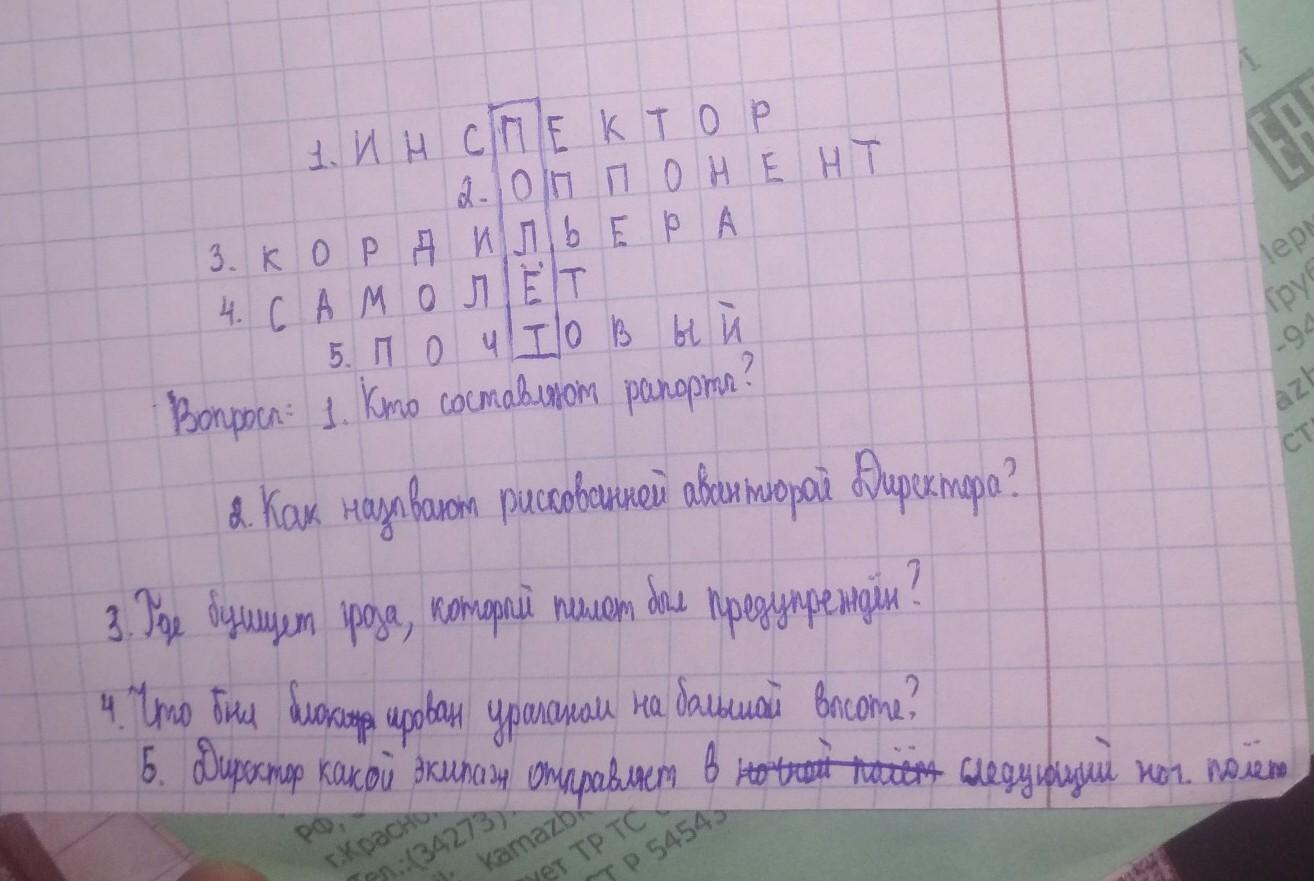 1. ИНСПЕКТОР
2. ОППОНЕНТ
3. КОРДИЛЬЕРА
4. САМОЛЁТ
5. ПОЧТОВЫЙ
Вопросы: 1. Кто составляют рапорты?
2. Как называют рискованной авантюрой Директора?
3. Где бушует гроза, который пилот был предупреждён?
4. Что был блокирован ураганом на большой высоте?
5. Директор какой экипаж отправляет в ночной полёт следующий ноч. полёт
РФ,
г.Красно
Тел.:(34273)
kamazbk
ует ТР ТС
СТ Р 54543
EAC
Перм
Тру
-94
azb